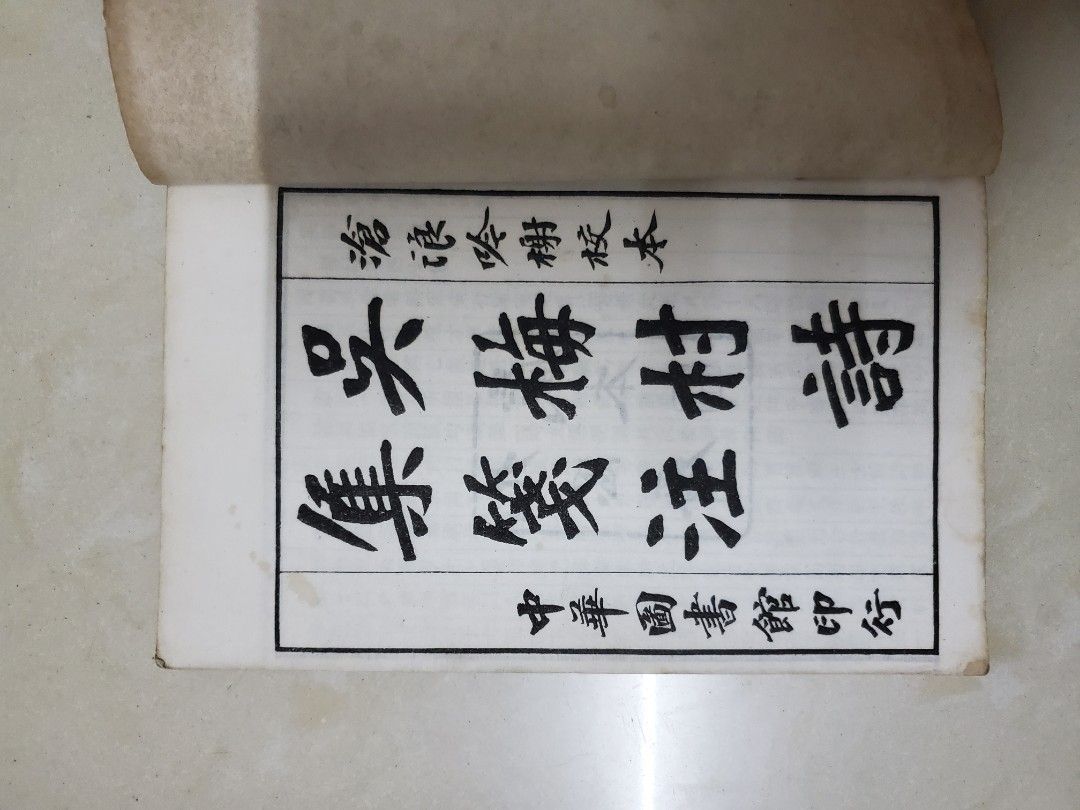 滄浪吟榭校本
吳梅村詩
集箋注
中華圖書館印行